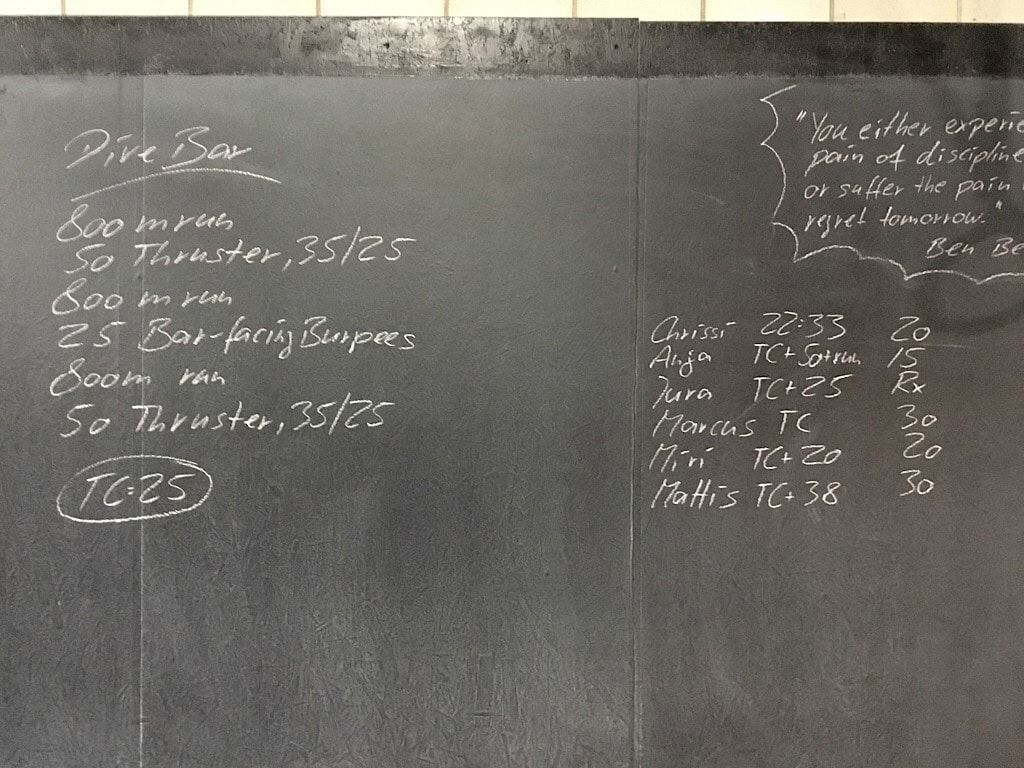 Dive Bar
800 m run
50 Thruster, 35/25
800 m run
25 Bar-facing Burpees
800m run
50 Thruster, 35/25
TC=25
"You either experie
pain of discipline
or suffer the pain
regret tomorrow."
Ben Be
Chrissi 22:33 20
Anja TC+50+run 15
Jura TC+25 Rx
Marcus TC 30
Miri TC+20 20
Mattis TC+38 30